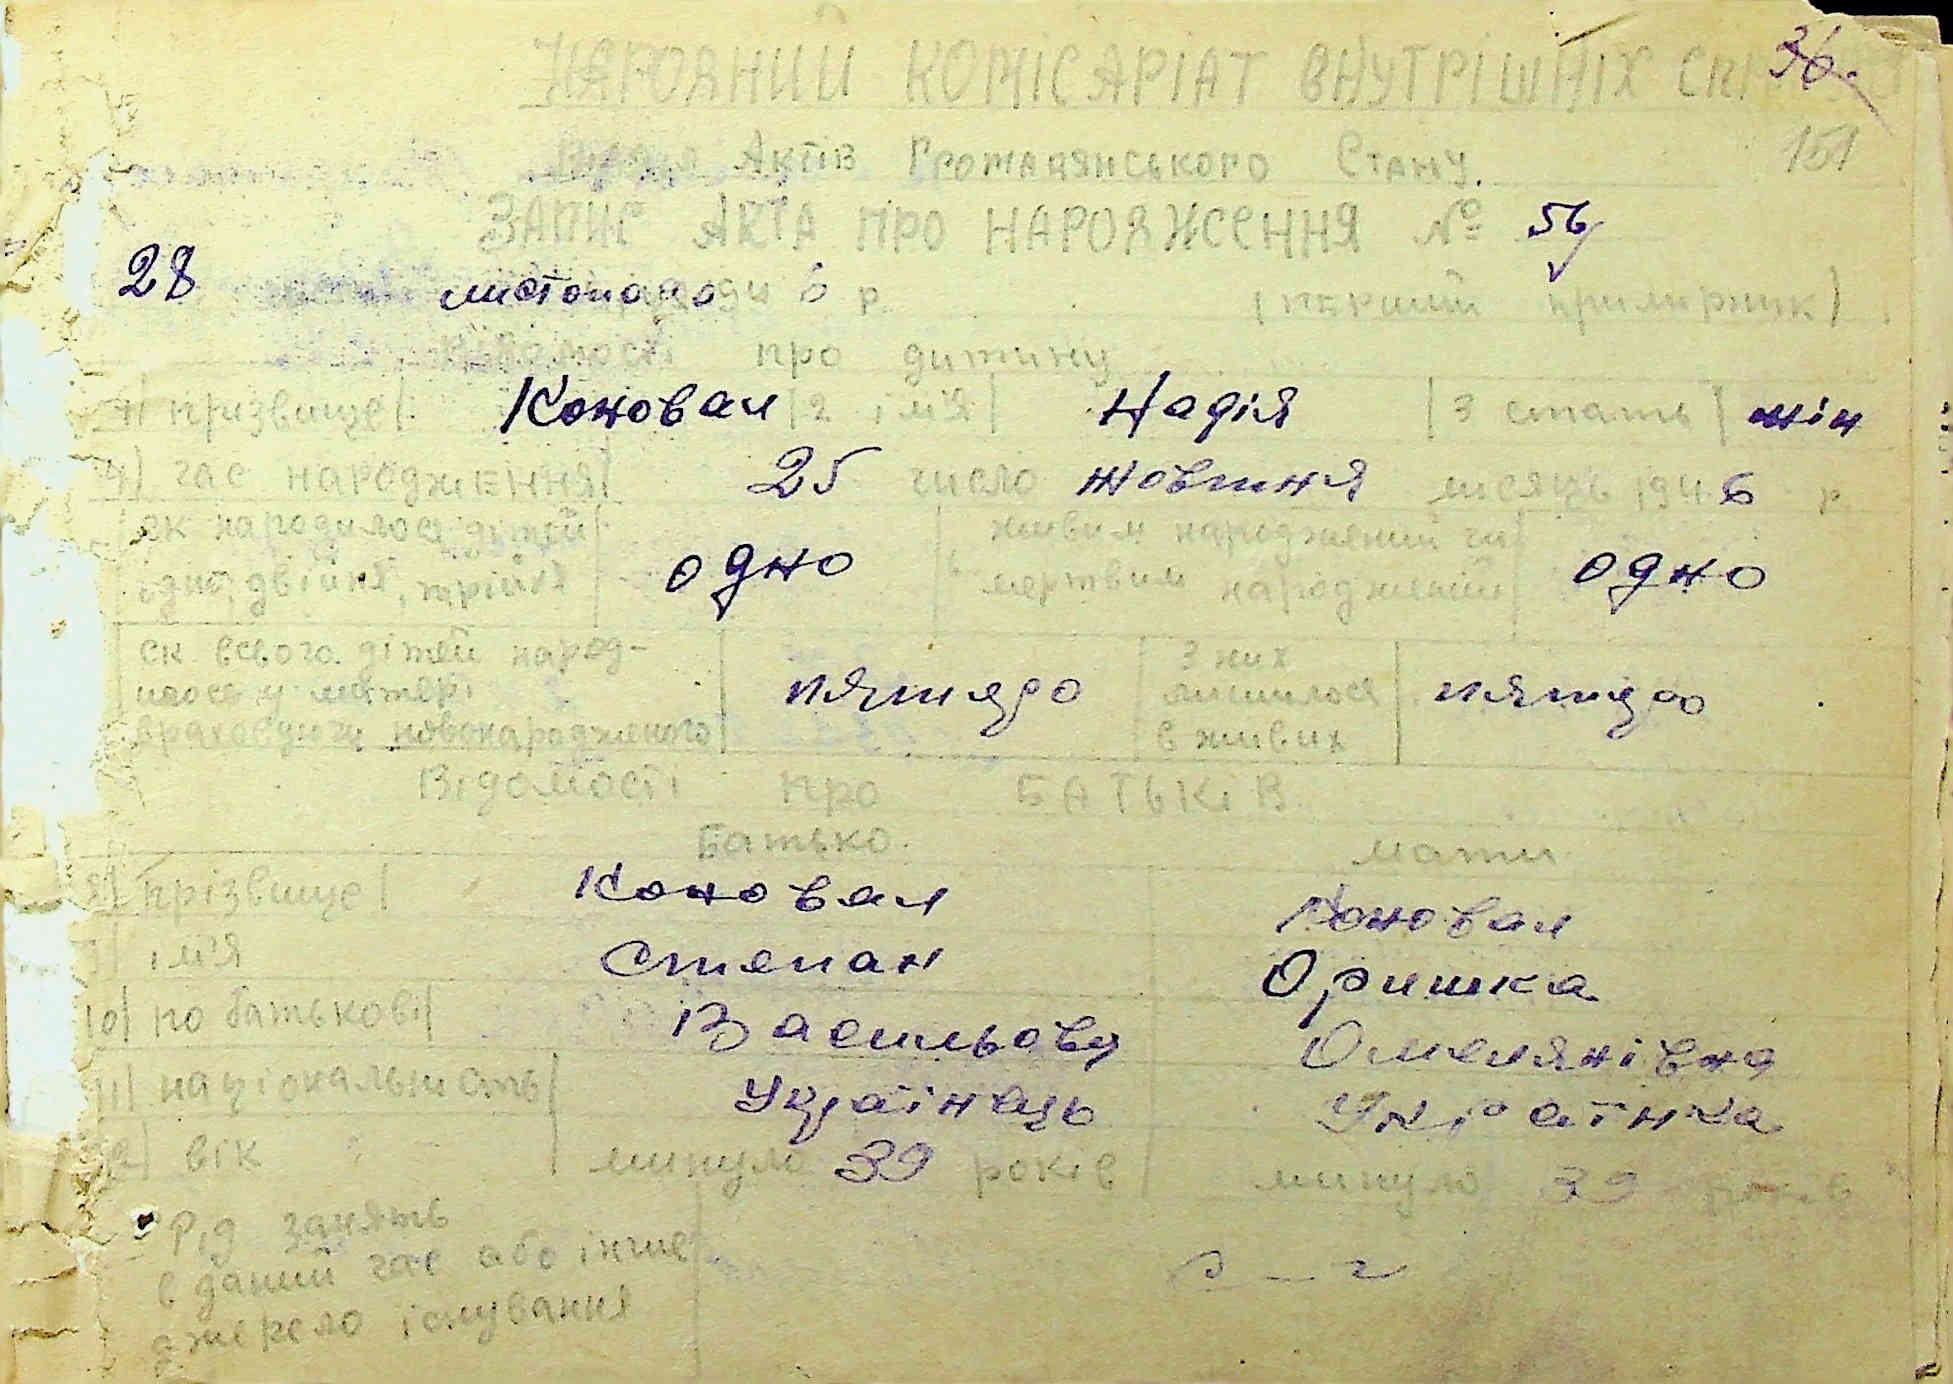 НАРОДНИЙ КОМІСАРІАТ ВНУТРІШНІХ 36.
Актів Громадянського Стану. 151
ЗАПИС АКТА ПРО НАРОДЖЕННЯ № 56
28 листопада 6 р. (перший примірник)
Відомості про дитину
1) призвище Коновал 2 ім'я Надія 3 стать жін
4) час народження 25 число жовтня місяць 1946 р
ск народилося дітей
одно, двійня, трійня одно
живим народжений чи
мертвим народжений одно
ск. всього дітей народ-
илось у матері
враховуючи новонародженого пятеро
З них
лишилося
в живих пятеро
Відомості про БАТЬКІВ
Батько. мати
8) прізвище Коновал Коновал
9) ім'я Степан Оришка
10) по батькові Васильову Омелянівна
11) національність Українець Українка
12) вік минуло 39 років минуло 39 років
Рід занять
в даний час або інше
джерело існування